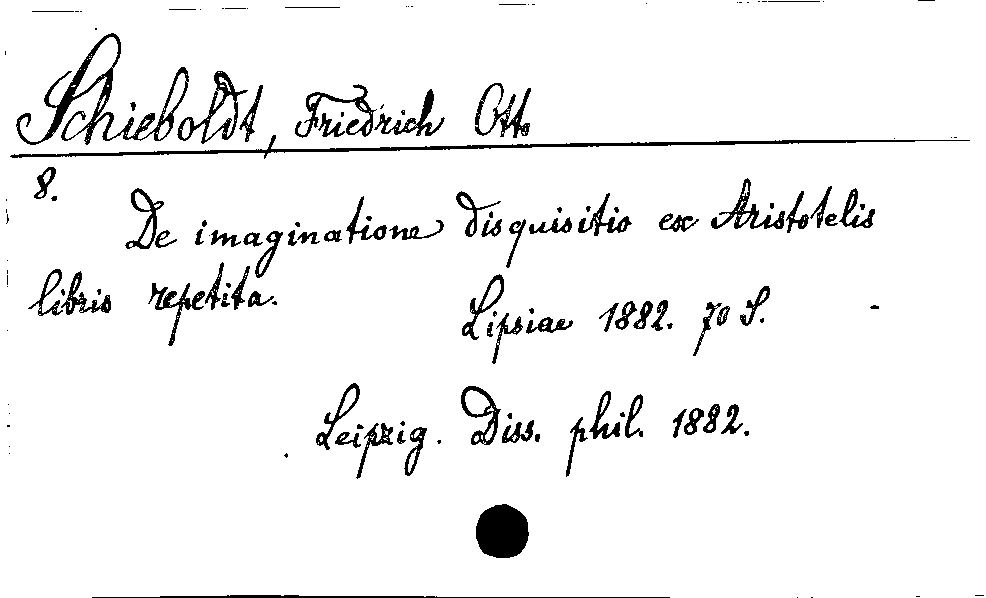 Schieboldt, Friedrich Otto
8.
De imaginatione disquisitio ex Aristotelis
libris repetita.
Lipsiae 1882. 70 S.
Leipzig. Diss. phil. 1882.